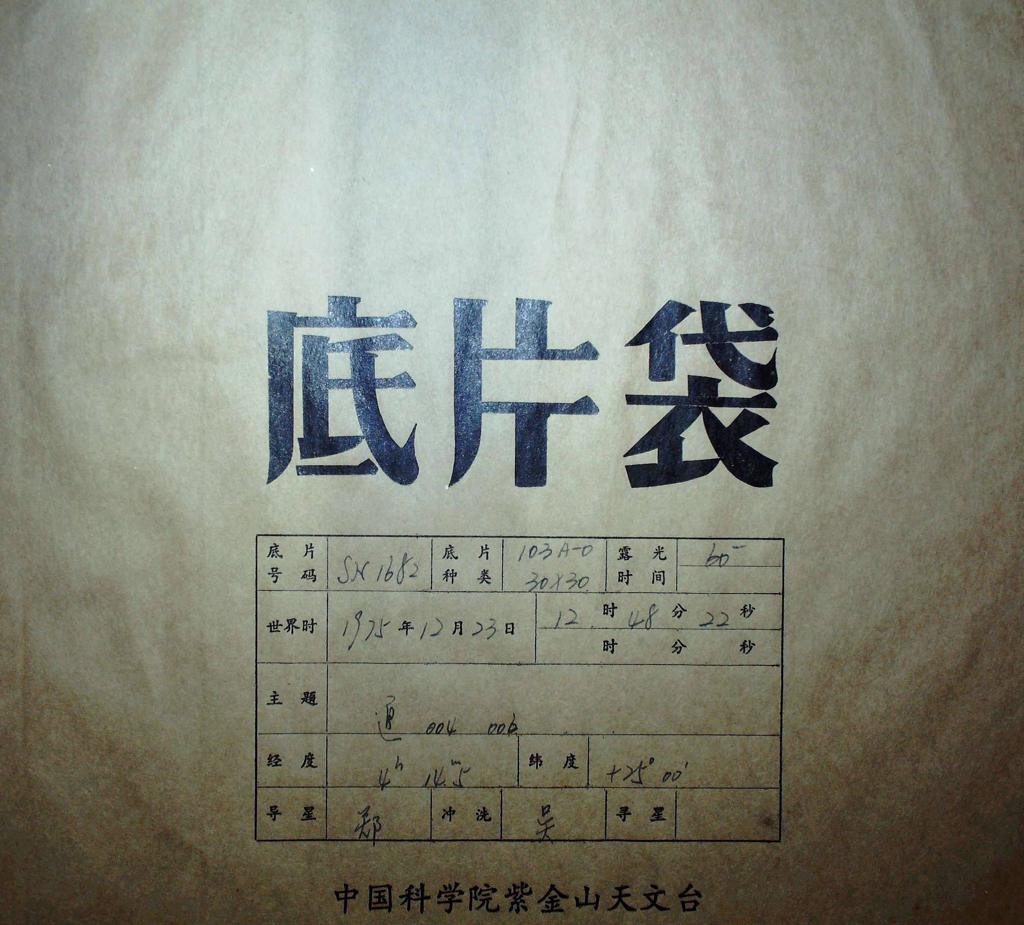 底片袋
底片号码 SN 1682 底片种类 103A-0 30×30 露光时间 60
世界时 1975年12月23日 12时48分22秒
时 分 秒
主题 004 006
经度 4h 14m.5 纬度 +25°00′
导星 郑 冲洗 吴 寻星
中国科学院紫金山天文台